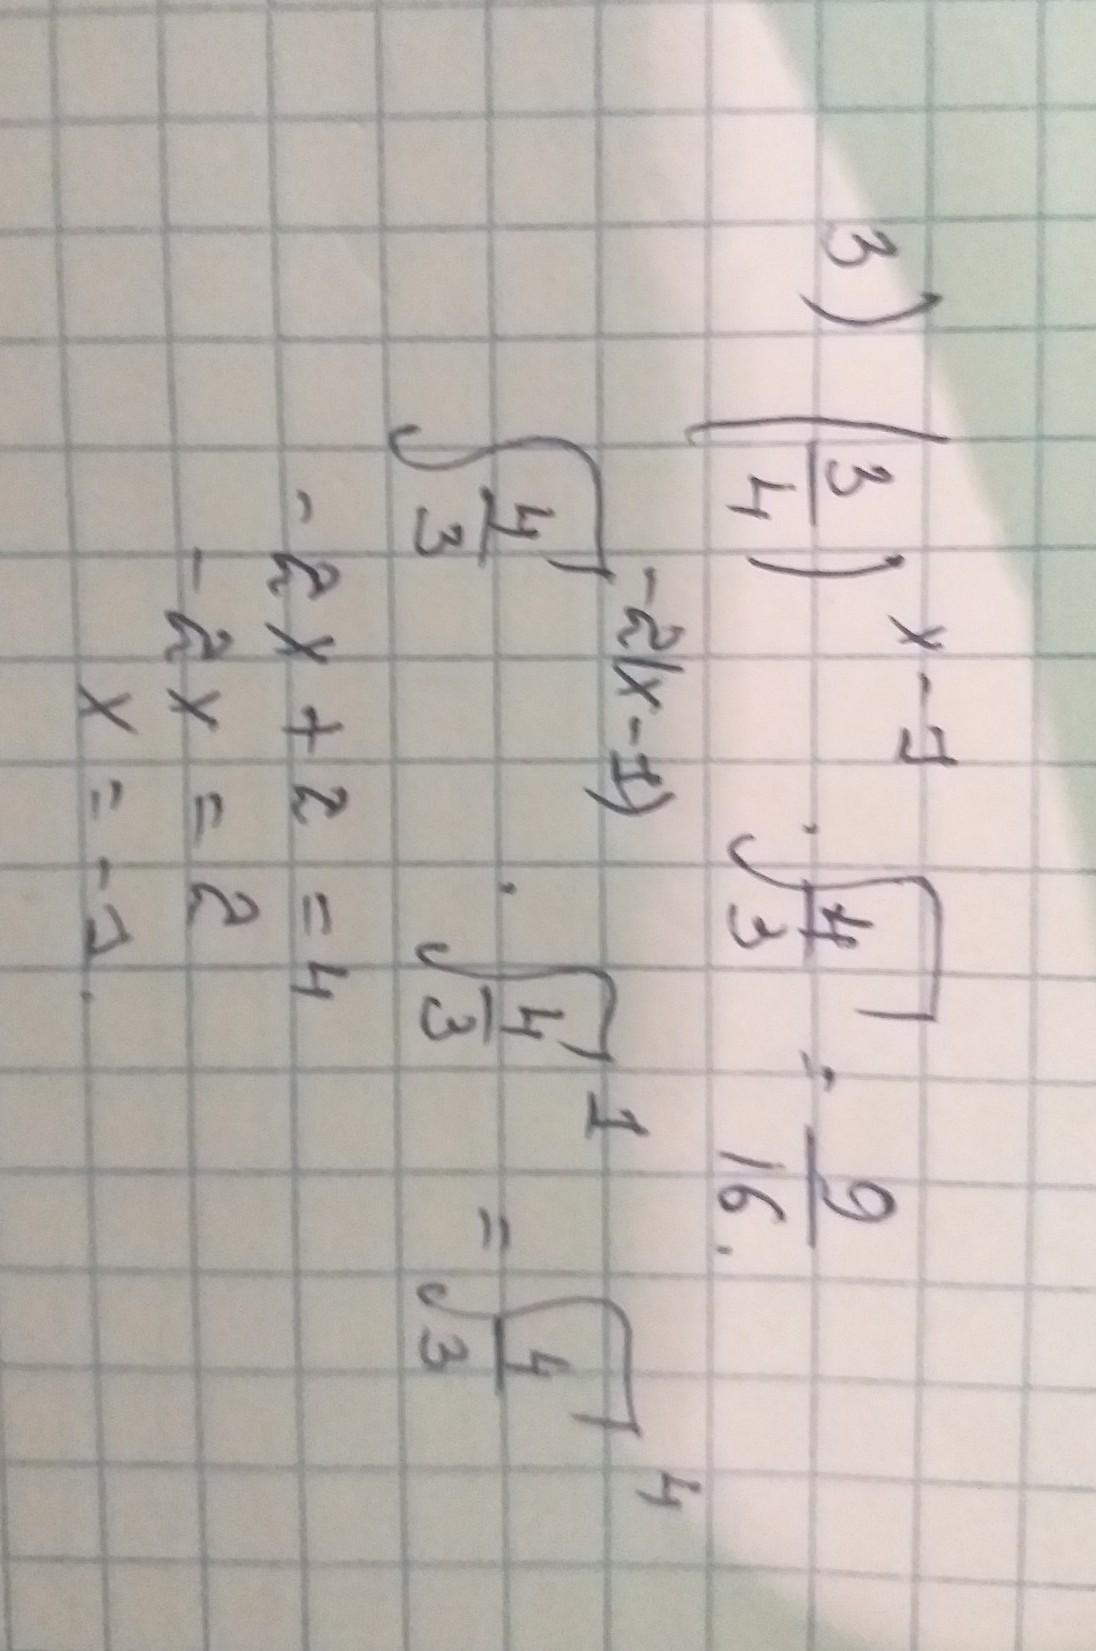 3) (3/4)^(x-1) · √(4/3) = 9/16.
√(4/3)^(-2(x-1)) · √(4/3)^1 = √(4/3)^4
-2x + 2 = 4
-2x = 2
x = -1.